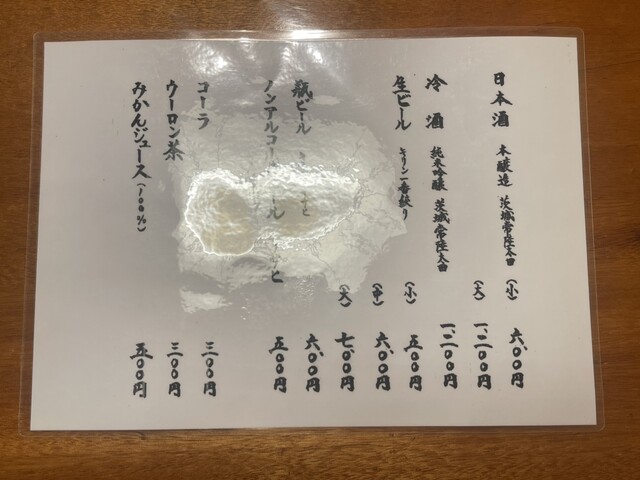 日本酒 本醸造 茨城常陸太田 (小) 六〇〇円
(大) 一、二〇〇円
冷酒 純米吟醸 茨城常陸太田 一、二〇〇円
生ビール キリン一番絞り (小) 五〇〇円
(中) 六〇〇円
(大) 七〇〇円
瓶ビール 六〇〇円
ノンアルコールビール 五〇〇円
コーラ 三〇〇円
ウーロン茶 三〇〇円
みかんジュース(100%) 五〇〇円